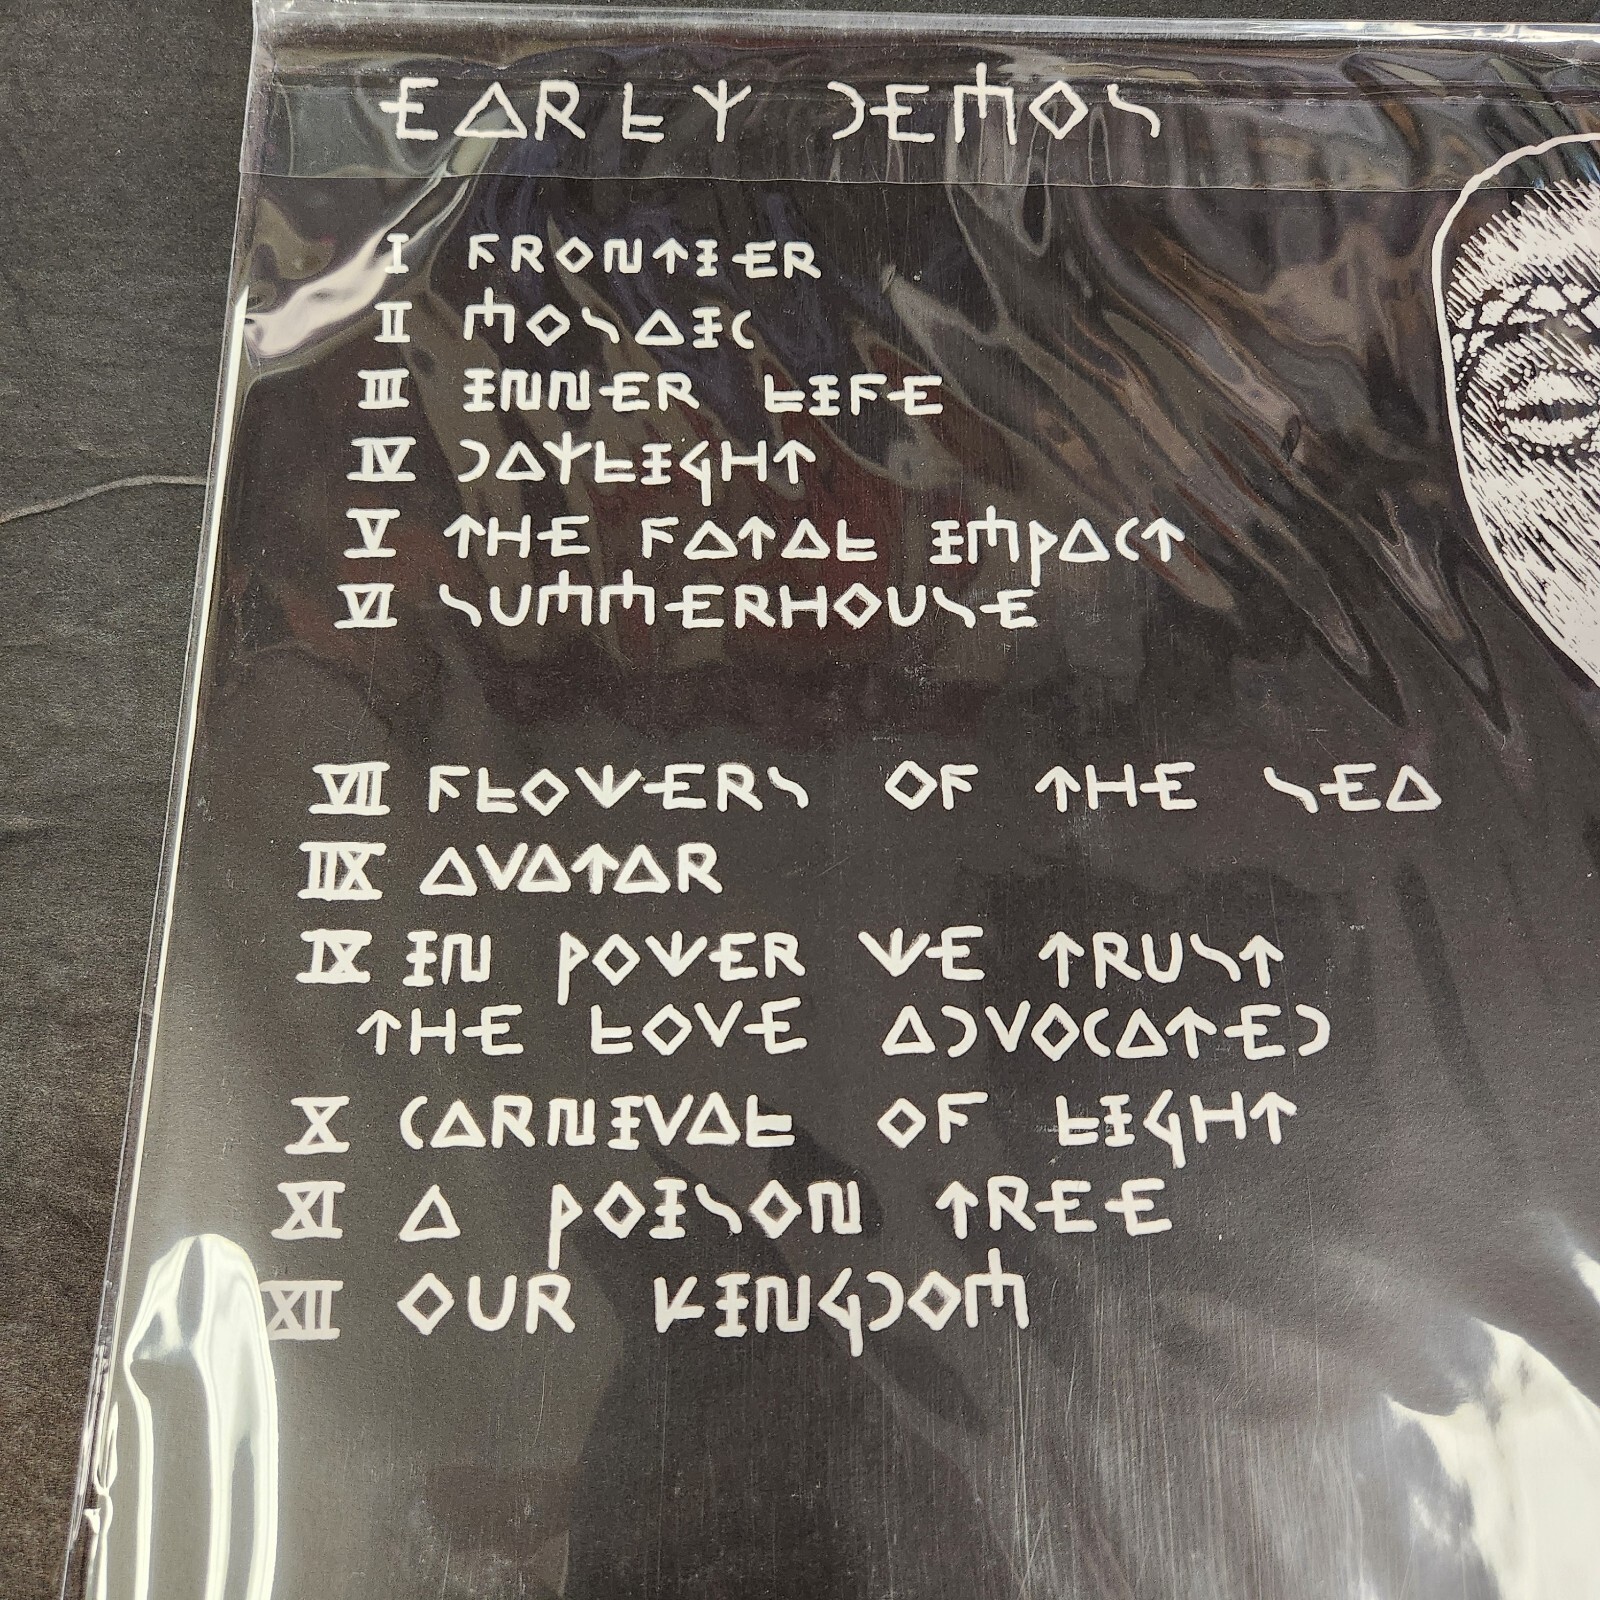 EARLY DEMOS
I FRONTIER
II MOSAIC
III INNER LIFE
IV DAYLIGHT
V THE FATAL IMPACT
VI SUMMERHOUSE
VII FLOWERS OF THE SEA
IIX AVATAR
IX IN POWER WE TRUST
THE LOVE ADVOCATED
X CARNIVAL OF LIGHT
XI A POISON TREE
XII OUR KINGDOM